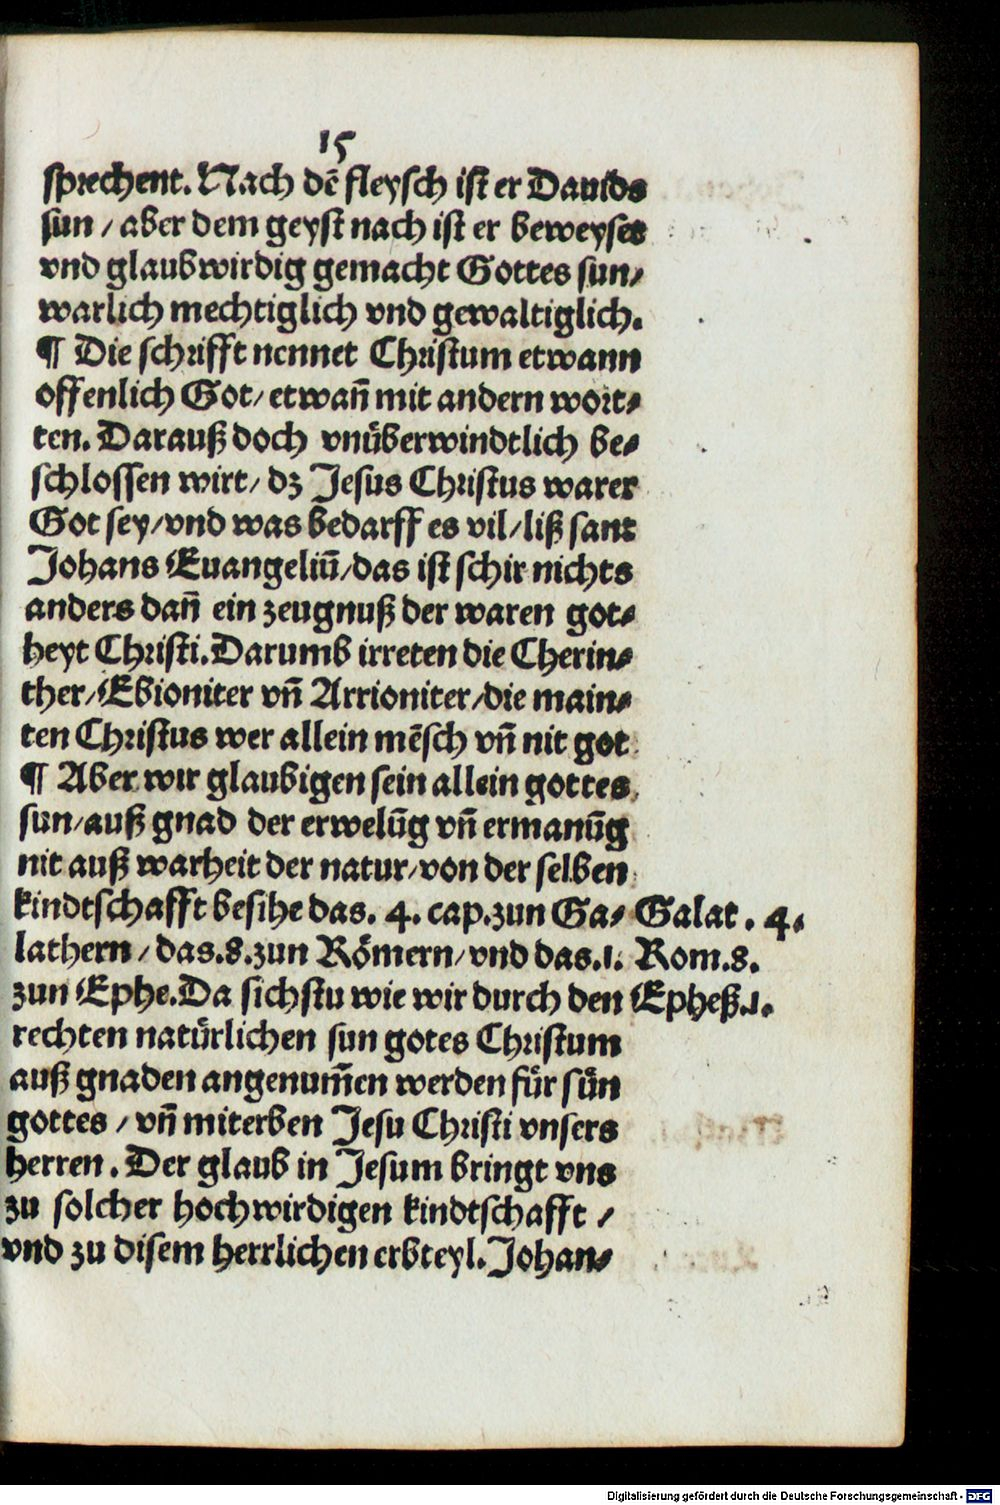 15
sprechent. Nach dē fleysch ist er Dauids
sun / aber dem geyst nach ist er beweyset
vnd glaubwirdig gemacht Gottes sun/
warlich mechtiglich vnd gewaltiglich.
¶ Die schrifft nennet Christum etwann
offenlich Got/ etwañ mit andern wort⸗
ten. Darauß doch vnüberwindtlich be⸗
schlossen wirt/ dz Jesus Christus warer
Got sey/vnd was bedarff es vil/liß sant
Johans Euangeliū/das ist schir nichts
anders dañ ein zeugnuß der waren got⸗
heyt Christi. Darumb irreten die Cherin⸗
ther/Ebioniter vñ Arrioniter/die main⸗
ten Christus wer allein mēsch vñ nit got
¶ Aber wir glaubigen sein allein gottes
sun/auß gnad der erwelūg vñ ermanūg
nit auß warheit der natur/von der selben
kindtschafft besihe das. 4. cap.zun Ga⸗ Galat. 4.
lathern/das.8.zun Römern/vnd das.1. Rom.8.
zun Ephe.Da sichstu wie wir durch den Epheß.1.
rechten natürlichen sun gotes Christum
auß gnaden angenum̄en werden für sün
gottes / vñ miterben Jesu Christi vnsers
herren. Der glaub in Jesum bringt vns
zu solcher hochwirdigen kindtschafft /
vnd zu disem herrlichen erbteyl. Johan⸗
Digitalisierung gefördert durch die Deutsche Forschungsgemeinschaft - DFG